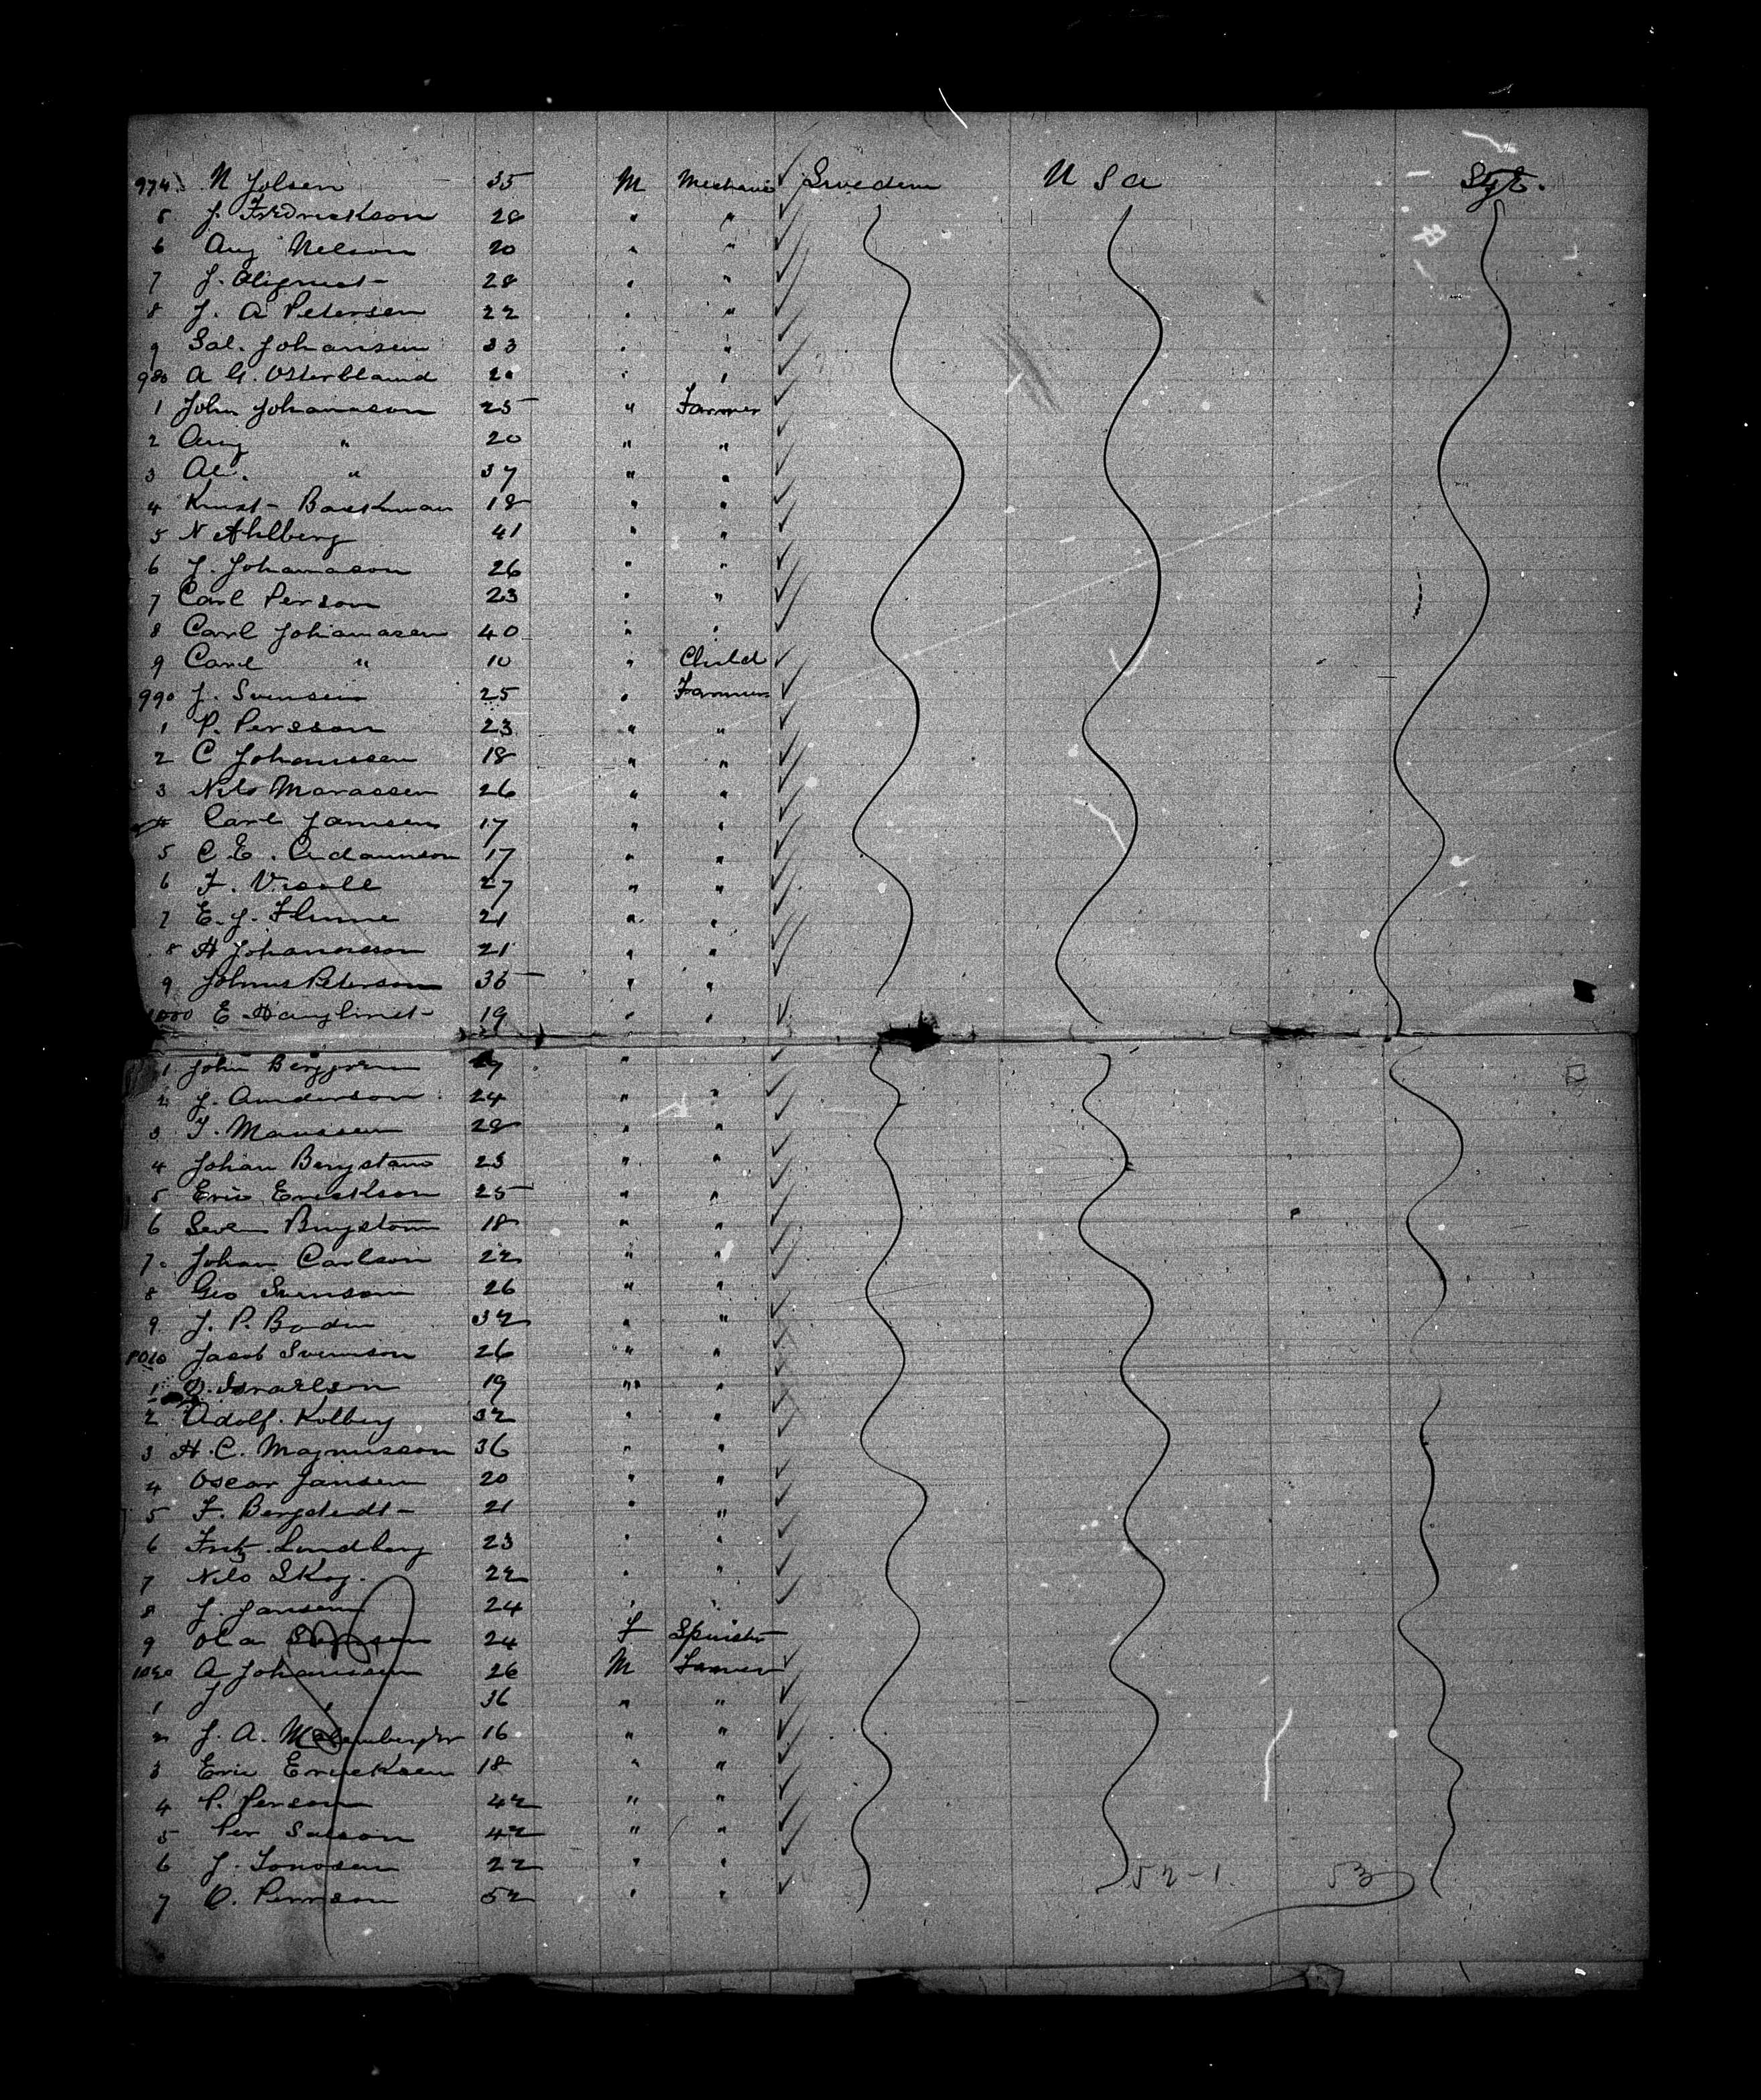 974 N Jolsen 35 M Mechanic ✓ Sweden U S A Stge.
5 J. Fredrickson 28 " " ✓
6 Aug Nelson 20 " " ✓
7 J. 28 " " ✓
8 J. A Petersen 22 " " ✓
9 Sal. Johansen 33 " " ✓
980 A G. Osterblaud 20 " " ✓
1 John Johanason 25 " Farmer ✓
2 Aug " 20 " " ✓
3 " 37 " " ✓
4 Backman 18 " " ✓
5 N Ahlberg 41 " " ✓
6 J. Johanason 26 " " ✓
7 Carl Person 23 " " ✓
8 Carl Johanasen 40 " " ✓
9 Carl " 10 " Child ✓
990 J. Svensen 25 " Farmer ✓
1 P. Persson 23 " " ✓
2 C Johanssen 18 " " ✓
3 Nils Marassen 26 " " ✓
4 Carl Jamsen 17 " " ✓
5 C. E. Adamnson 17 " " ✓
6 F. 27 " " ✓
7 E. J. 21 " " ✓
8 A Johanasson 21 " " ✓
9 Johnus Peterson 35 " " ✓
1000 E 19 " " ✓
1 John Berggren " ✓
2 J. Aunderson 24 " " ✓
3 J. Manssen 28 " " ✓
4 Johan Bergstam 23 " " ✓
5 Eric Erickson 25 " " ✓
6 Sven 18 " " ✓
7 Johan Carlson 22 " " ✓
8 Geo Svenson 26 " " ✓
9 J. P. Boden 32 " " ✓
1010 Jacob Svennson 26 " "
1 O. Israelson 19 " "
2 Adolf. Kolberg 32 " "
3 H. C. Magnusson 36 " "
4 Oscar Jansen 20 " " ✓
5 F. Bergstedt 21 " " ✓
6 Fritz Lundberg 23 " " ✓
7 Nils Skog. 22 " " ✓
8 J. Jansen 24 " " ✓
9 Ola 24 F Spinster
1020 A Johanssen 26 M Farmer ✓
1 J " 36 " " ✓
2 J. A. 16 " " ✓
3 Eric Ericksen 18 " " ✓
4 P. Person 42 " " ✓
5 Per 42 " " ✓
6 J. 22 " " ✓ 52-1 53
7 O. Pernson 52 " " ✓